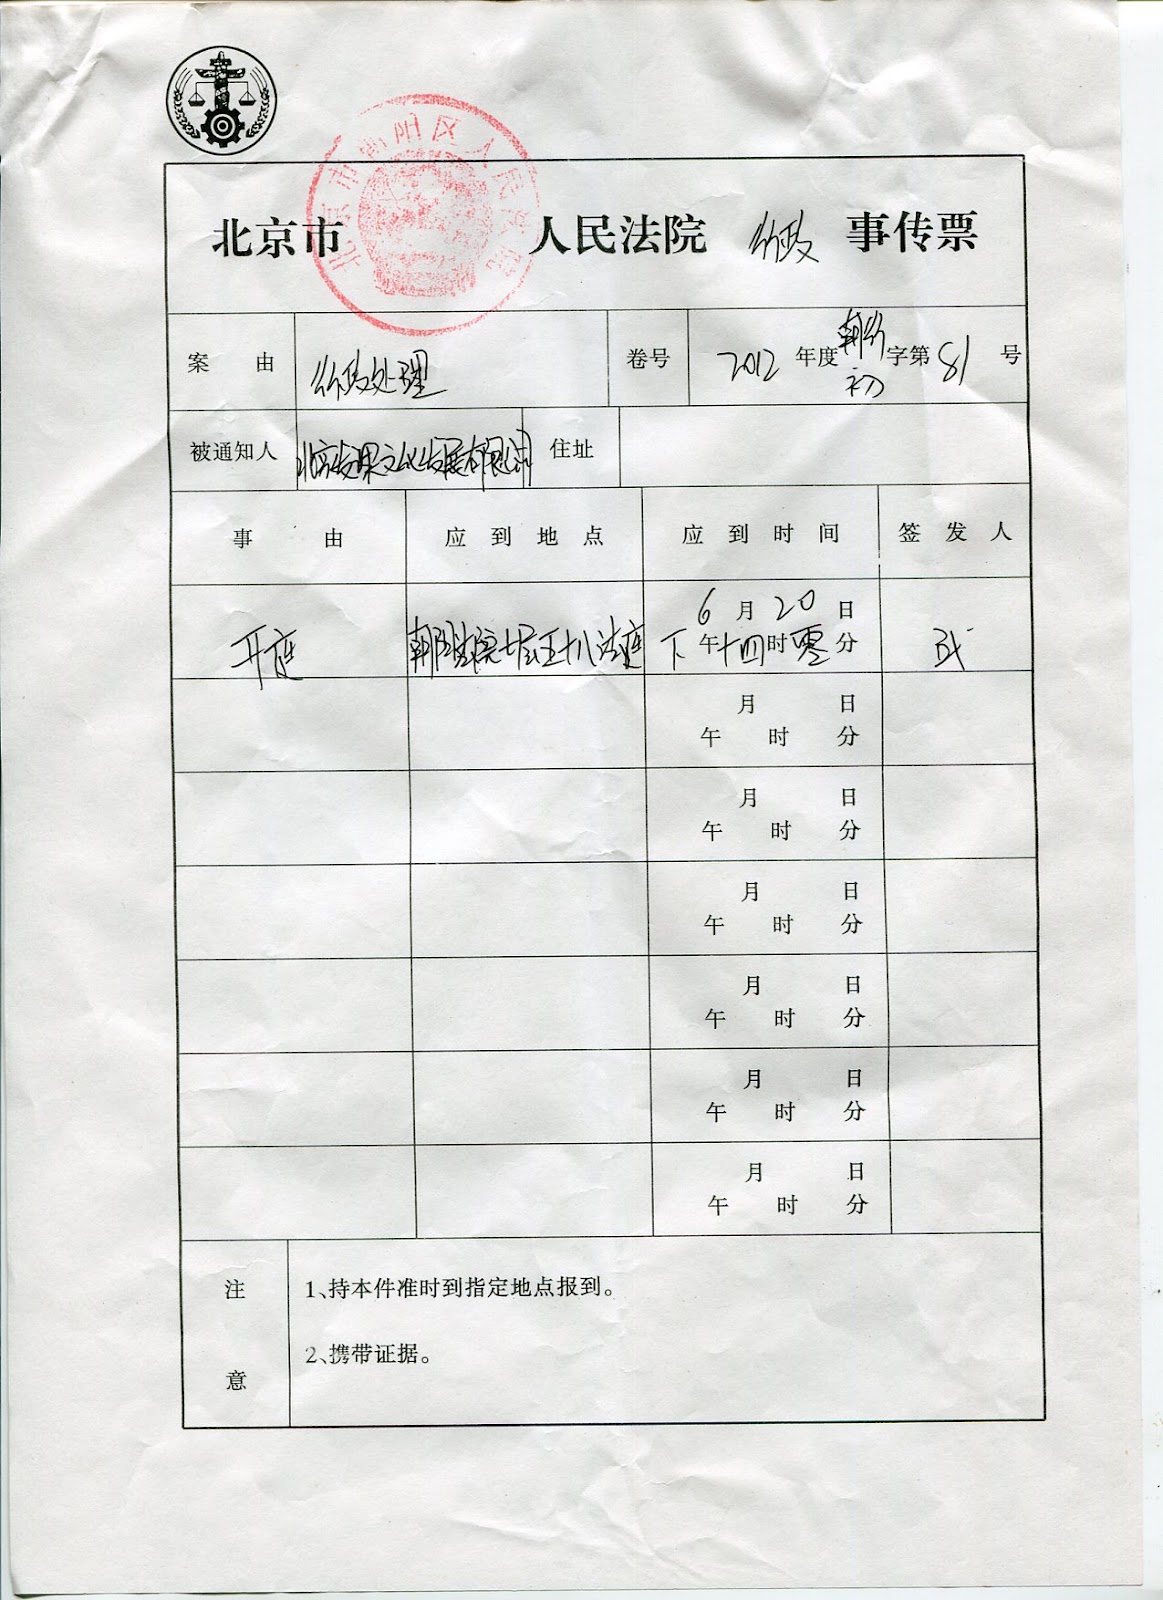 北京市朝阳区人民法院
北京市 人民法院 行政 事传票
案由 行政处理 卷号 2012 年度 朝行初 字第 81 号
被通知人 北京发课文化发展有限公司 住址
事由 应到地点 应到时间 签发人
6月20日
开庭 朝阳法院七层五十八法庭 下午十四时零分
月 日
午 时 分
月 日
午 时 分
月 日
午 时 分
月 日
午 时 分
月 日
午 时 分
月 日
午 时 分
注意
1、持本件准时到指定地点报到。
2、携带证据。